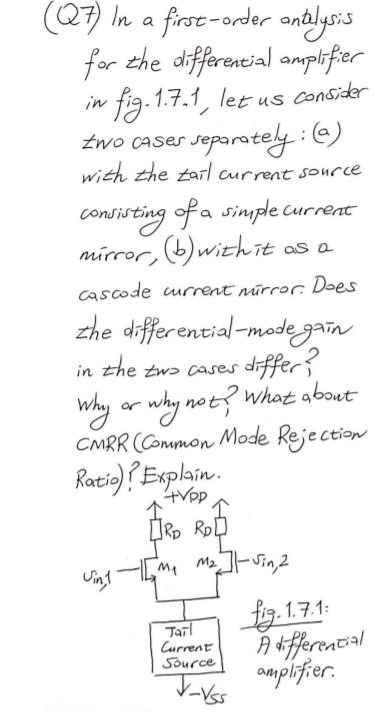 (Q7) In a first-order analysis
for the differential amplifier
in fig.1.7.1, let us consider
two cases separately: (a)
with the tail current source
consisting of a simple current
mirror, (b) with it as a
cascode current mirror. Does
the differential-mode gain
in the two cases differ?
Why or why not? What about
CMRR (Common Mode Rejection
Ratio)? Explain.
+VDD
RD RD
vin,1 M1 M2 vin,2
Tail
Current
Source
-VSS
fig.1.7.1:
A differential
amplifier.